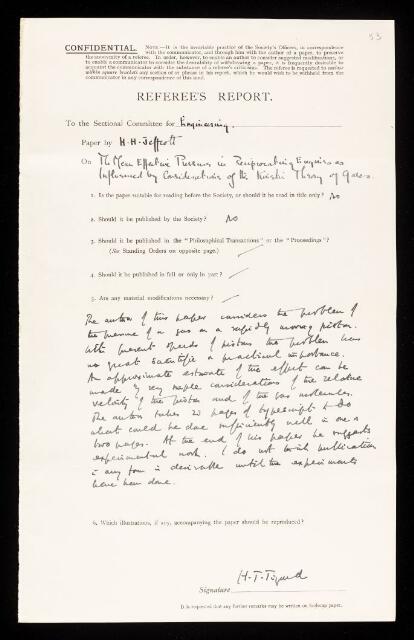 53
CONFIDENTIAL. NOTE.—It is the invariable practice of the Society's Officers, in correspondence
with the communicator, and through him with the author of a paper, to preserve
the anonymity of a referee. In order, however, to enable an author to consider suggested modifications, or
to enable a communicator to consider the desirability of withdrawing a paper, it is frequently desirable to
acquaint the communicator with the substance of a referee's criticisms. The referee is requested to enclose
within square brackets any section of or phrase in his report, which he would wish to be withheld from the
communicator in any correspondence of this kind.
REFEREE'S REPORT.
To the Sectional Committee for Engineering.
Paper by H. H. Jeffcott
On The Mean Effective Pressure in Reciprocating Engines as
Influenced by Considerations of the Kinetic Theory of Gases.
1. Is the paper suitable for reading before the Society, or should it be read in title only? No
2. Should it be published by the Society? No
3. Should it be published in the "Philosophical Transactions" or the "Proceedings"?
(See Standing Orders on opposite page.)
4. Should it be published in full or only in part?
5. Are any material modifications necessary?
The author of this paper considers the problem of
the pressure of a gas on a rapidly moving piston.
With present speeds of pistons the problem has
no great scientific or practical importance.
An approximate estimate of the effect can be
made by very simple considerations of the relative
velocity of the piston and of the gas molecules.
The author takes 20 pages of typescript to do
what could be done sufficiently well in one or
two pages. At the end of his paper he suggests
experimental work. I do not think publication
in any form is desirable until the experiments
have been done.
6. Which illustrations, if any, accompanying the paper should be reproduced?
H. T. Tizard
Signature
It is requested that any further remarks may be written on foolscap paper.